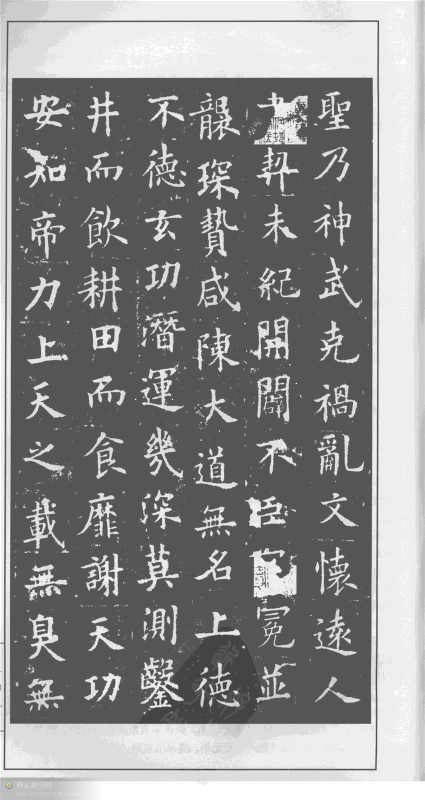 聖乃神武克禍亂文懷遠人
書契未紀開闢不臣冠冕並
襲琛贄咸陳大道無名上德
不德玄功潛運幾深莫測鑿
井而飲耕田而食靡謝天功
安知帝力上天之載無臭無